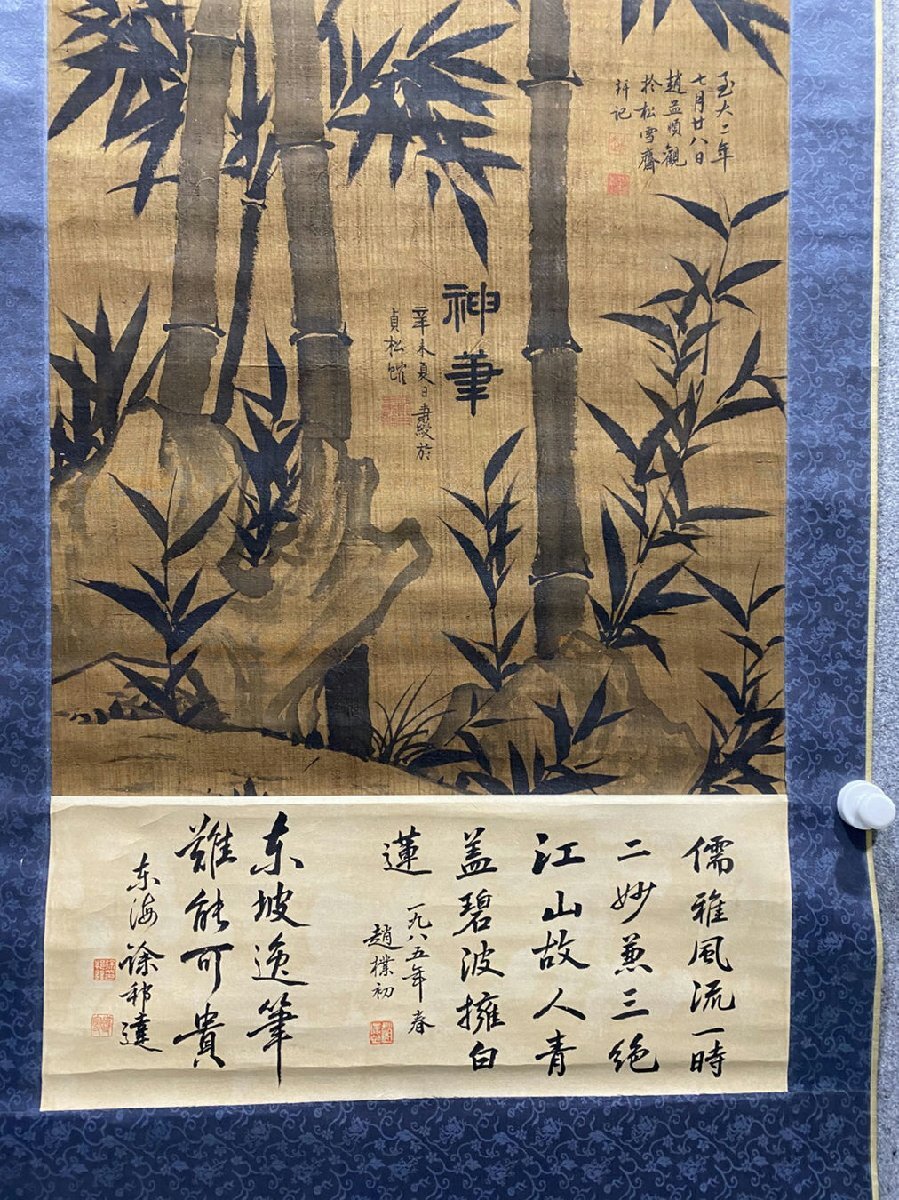 至大二年
七月廿八日
趙孟頫觀
於松雪齋
记
神筆
辛未夏日於
貞松
儒雅風流一時
二妙兼三绝
江山故人青
盖碧波擁白
蓮
一九八五年春
趙樸初
东坡逸筆
難能可貴
东海徐邦達